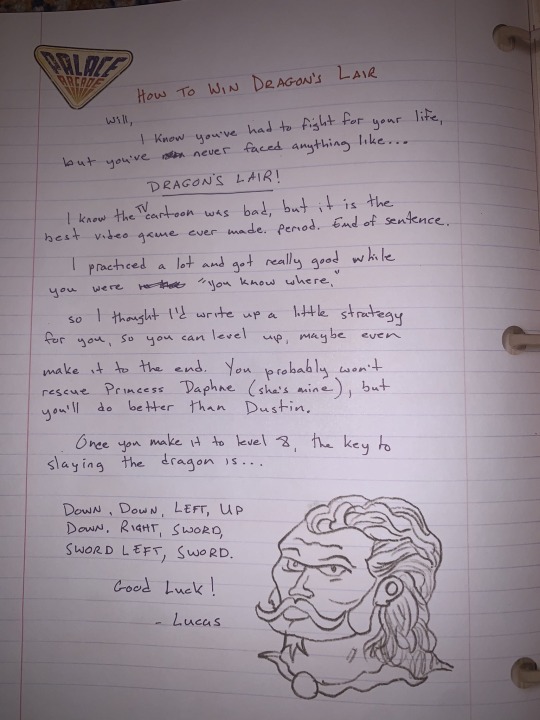 PALACE
ARCADE
HOW TO WIN DRAGON'S LAIR
Will,
I know you've had to fight for your life,
but you've never faced anything like...
DRAGON'S LAIR!
I know the TV cartoon was bad, but it is the
best video game ever made. period. End of sentence.
I practiced a lot and got really good while
you were "you know where,"
so I thought I'd write up a little strategy
for you, so you can level up, maybe even
make it to the end. You probably won't
rescue Princess Daphne (she's mine), but
you'll do better than Dustin.
Once you make it to level 8, the key to
slaying the dragon is...
DOWN, DOWN, LEFT, UP
DOWN. RIGHT, SWORD,
SWORD LEFT, SWORD.
Good Luck!
- Lucas